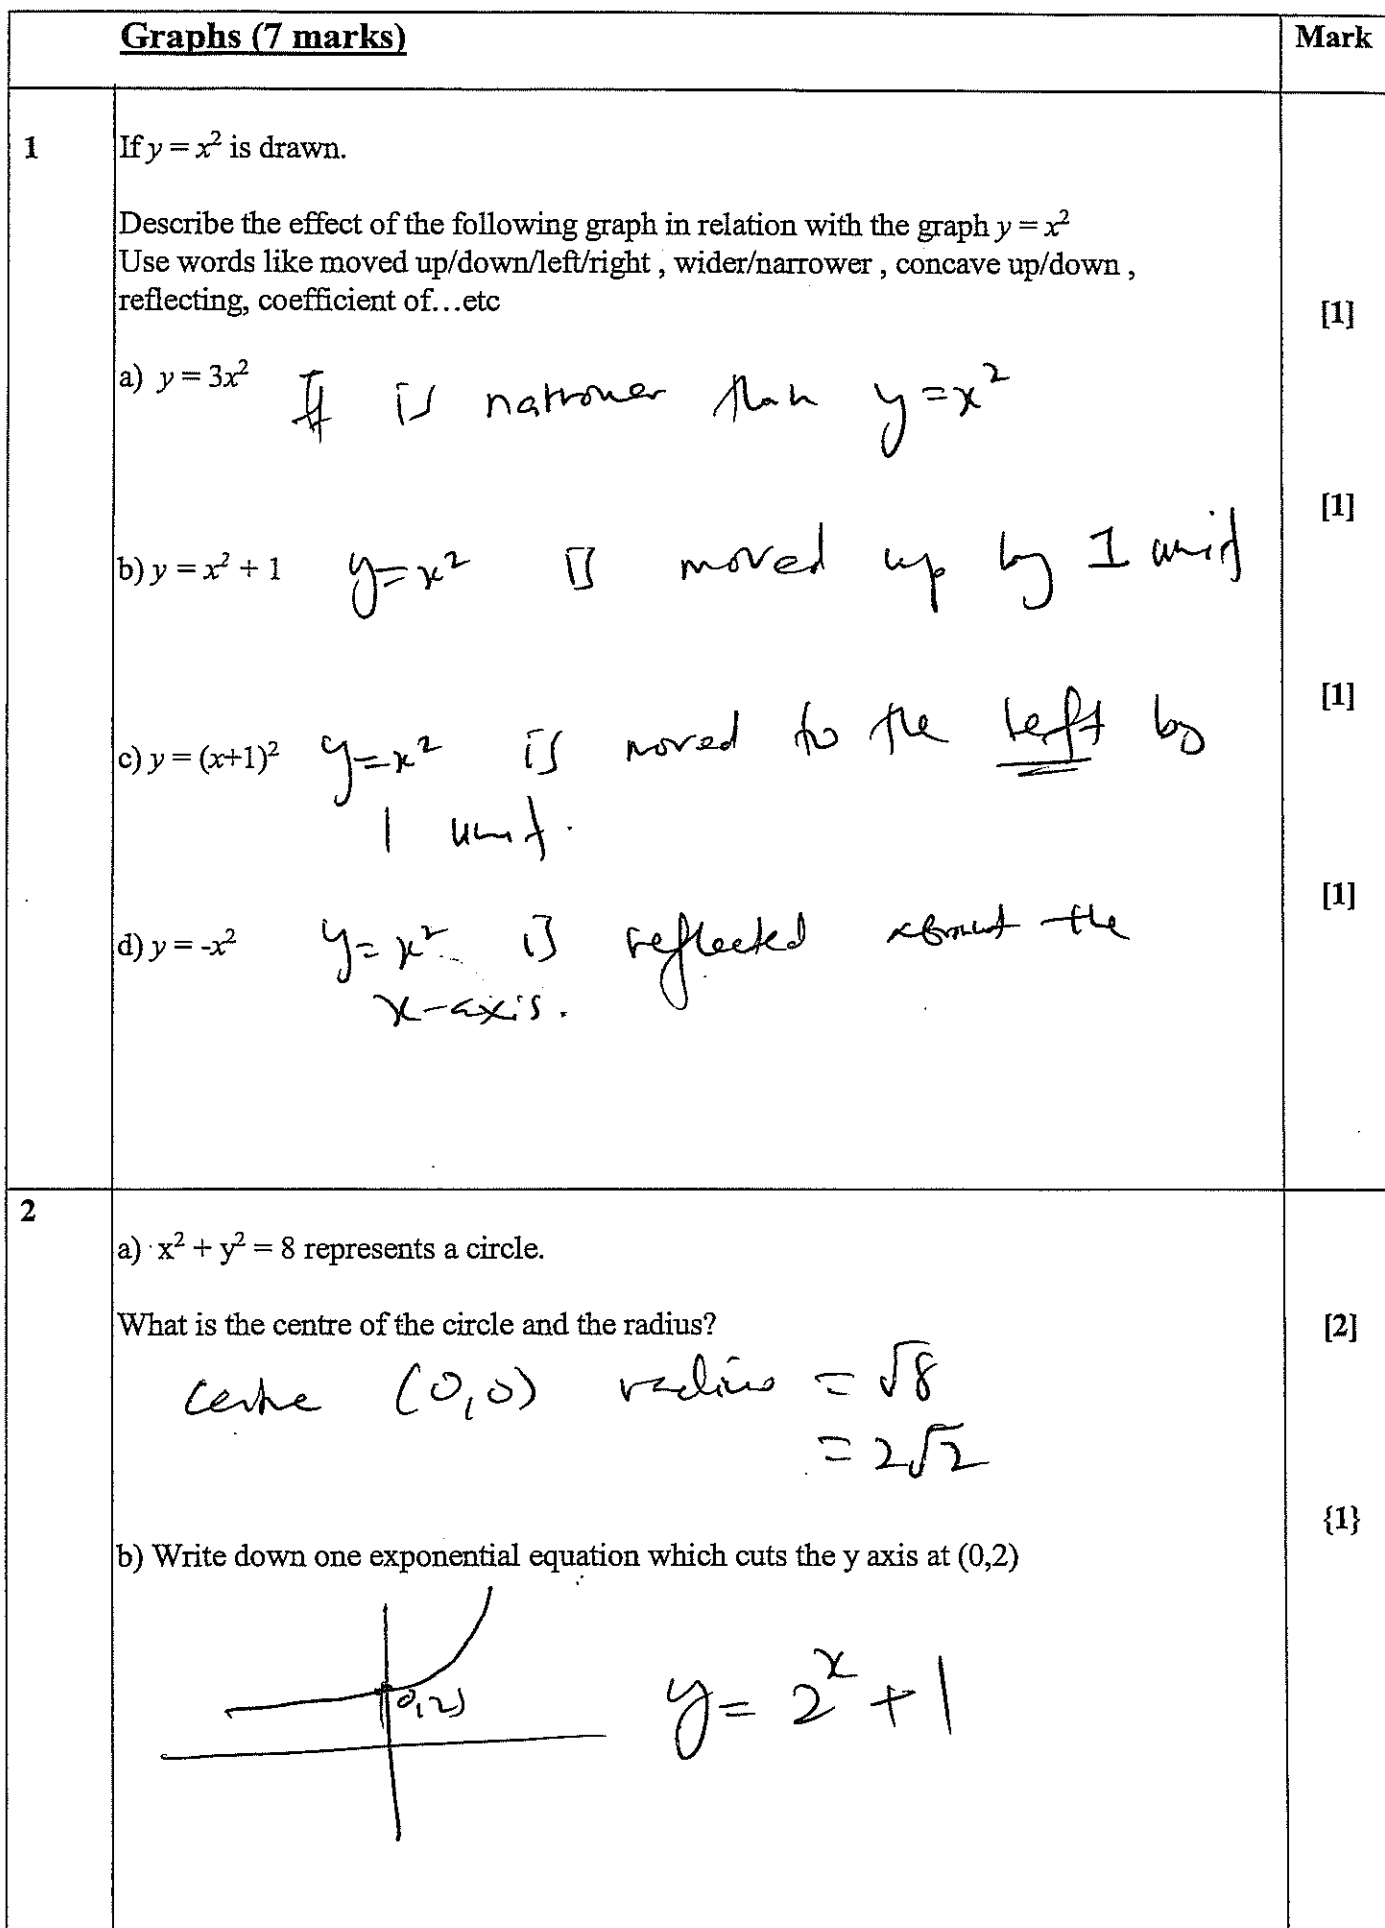 Graphs (7 marks)
Mark
1
If y = x² is drawn.
Describe the effect of the following graph in relation with the graph y = x²
Use words like moved up/down/left/right , wider/narrower , concave up/down ,
reflecting, coefficient of…etc
[1]
a) y = 3x² It is narrower than y = x²
[1]
b) y = x² + 1 y = x² is moved up by 1 unit
[1]
c) y = (x+1)² y = x² is moved to the left by
1 unit.
[1]
d) y = -x² y = x² is reflected about the
x-axis.
2
a) x² + y² = 8 represents a circle.
What is the centre of the circle and the radius?
[2]
centre (0,0) radius = √8
= 2√2
{1}
b) Write down one exponential equation which cuts the y axis at (0,2)
(0,2)
y = 2ˣ + 1